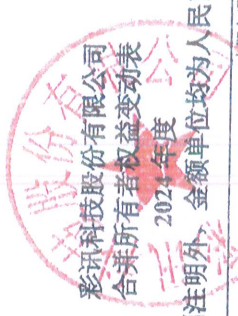 彩讯科技股份有限公司
合并所有者权益变动表
2024 年度
注明外，金额单位均为人民